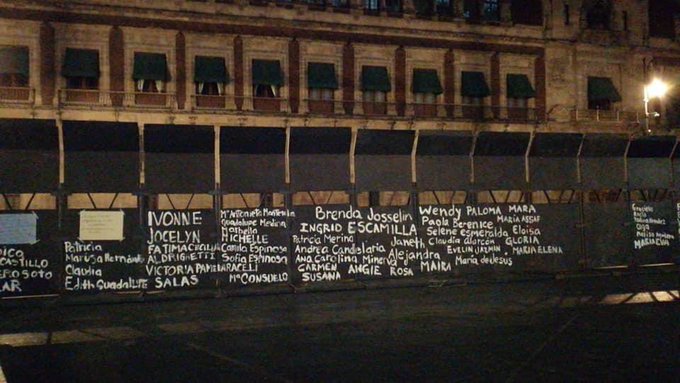 TILLO
SOTO
LAR
Patricia
Marusa Hernández
Claudia
Edith Guadalupe
IVONNE
JOCELYN
FATIMA CECILIA
ALDRIGETTI
VICTORIA PAMELA
SALAS
Guadalupe Medina
MICHELLE
Camila Espinosa
Sofia Espinosa
ARACELI
Ma CONSUELO
Brenda Josselin
INGRID ESCAMILLA
Patricia Merino
Andrea Candelaria
Ana Carolina Minerva
CARMEN ANGIE ROSA
SUSANA
Janeth
Alejandra
MAIRA
Wendy PALOMA MARA
Paola Berenice MARIA ASSAF
Selene esmeralda Eloisa
Claudia Alarcón GLORIA
EVELIN JURLEM MARIA ELENA
Maria de Jesus
Graciela
Olga
MARIA EVA